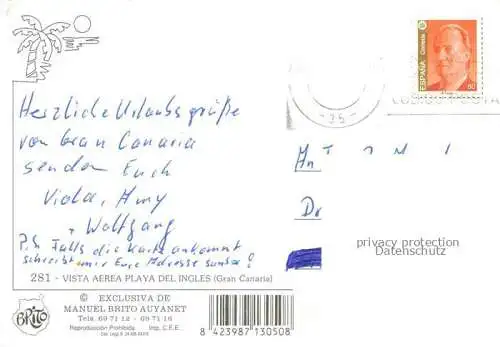 Herzliche Urlaubsgrüße
von Gran Canaria
senden Euch
Viola, Amy
+ Wolfgang
P.S. Falls die Karte ankommt
schreibt mir Eure Adresse sauber!
281 - VISTA AEREA PLAYA DEL INGLES (Gran Canaria)
© EXCLUSIVA DE
MANUEL BRITO AUYANET
Tels. 69 71 12 - 69 71 16
Reproducción Prohibida. Imp. C.F.E.
BRITO
8 423987 130508
ESPAÑA
Correos
60
-35-
An
Dr
privacy protection
Datenschutz